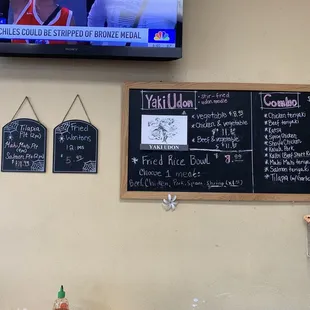 CHILES COULD BE STRIPPED OF BRONZE MEDAL
NBC
Tilapia
Plt
Mahi Mahi Plt
Salmon Plt
Fried
Wontons
12 pcs
5.95
Yaki Udon
stir-fried
udon noodle
vegetable
Chicken & vegetable
Beef & vegetable
YAKI UDON
Fried Rice Bowl
Choose 1 meat:
Beef, Chicken, Pork, Spam, Shrimp
Combo
Chicken teriyaki
Beef teriyaki
Katsu
Spicy Chicken
Shoyu Chicken
Kalua Pork
Kalbi Beef Short
Mahi Mahi
Salmon
Tilapia